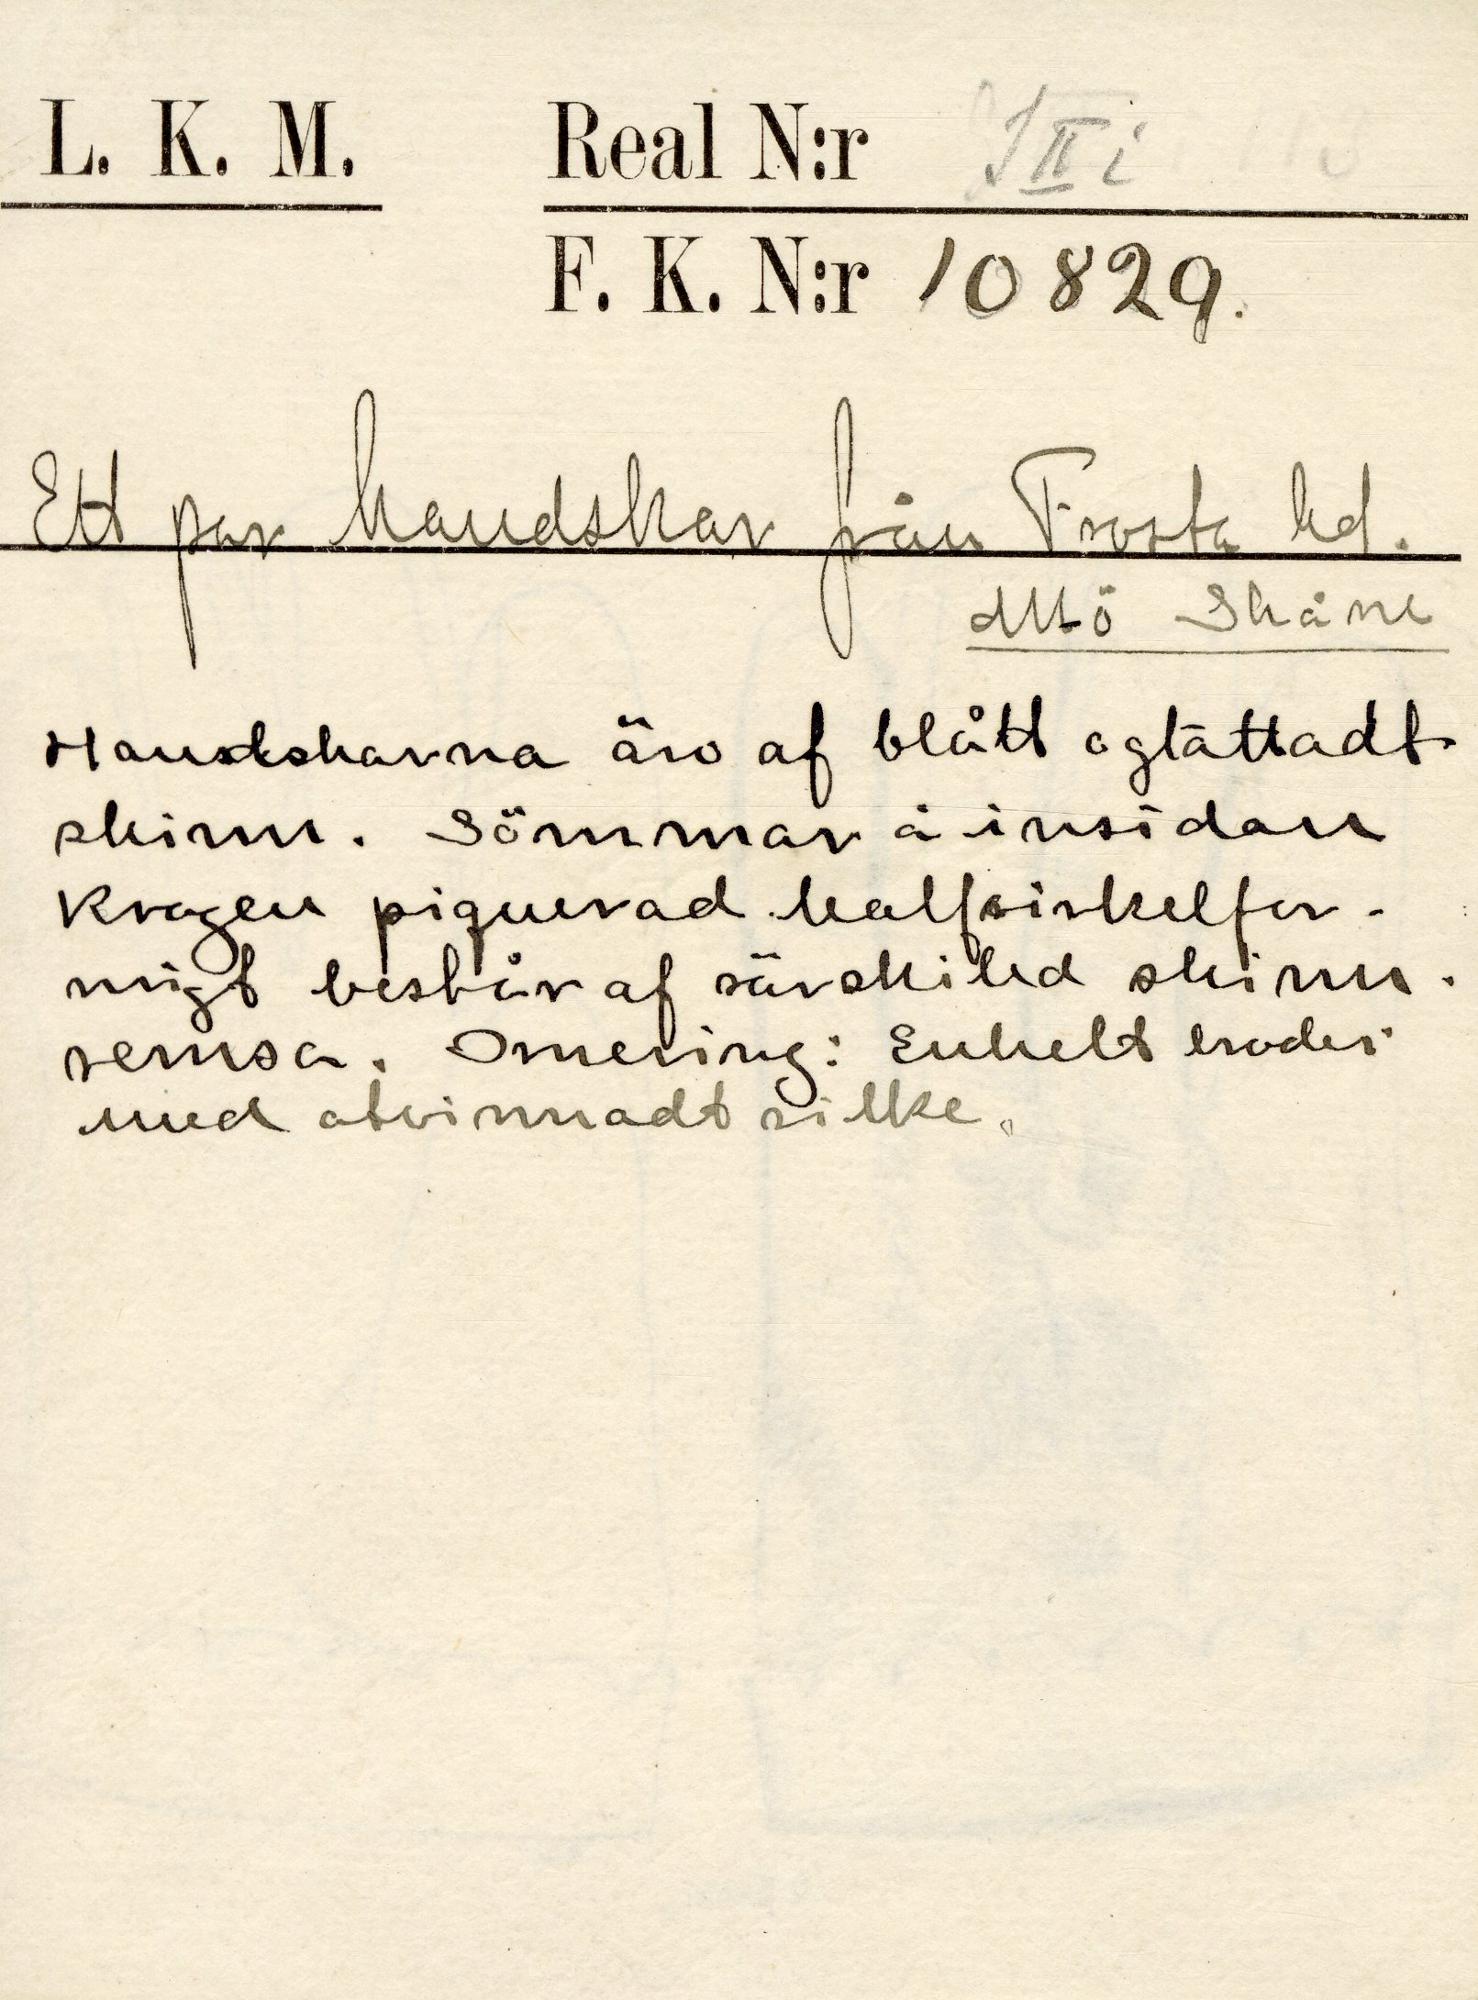 L. K. M. Real N:r III i
F. K. N:r 10829.
Ett par handskar från Frosta hd.
Skåne
Handskarna äro af blått oglättadt
skinn. Sömmar å insidan
Kragen piquerad halfsirkelfor-
migt består af särskild skinn-
remsa. Ornering: Enkelt broderi
med otvinnadt silke.